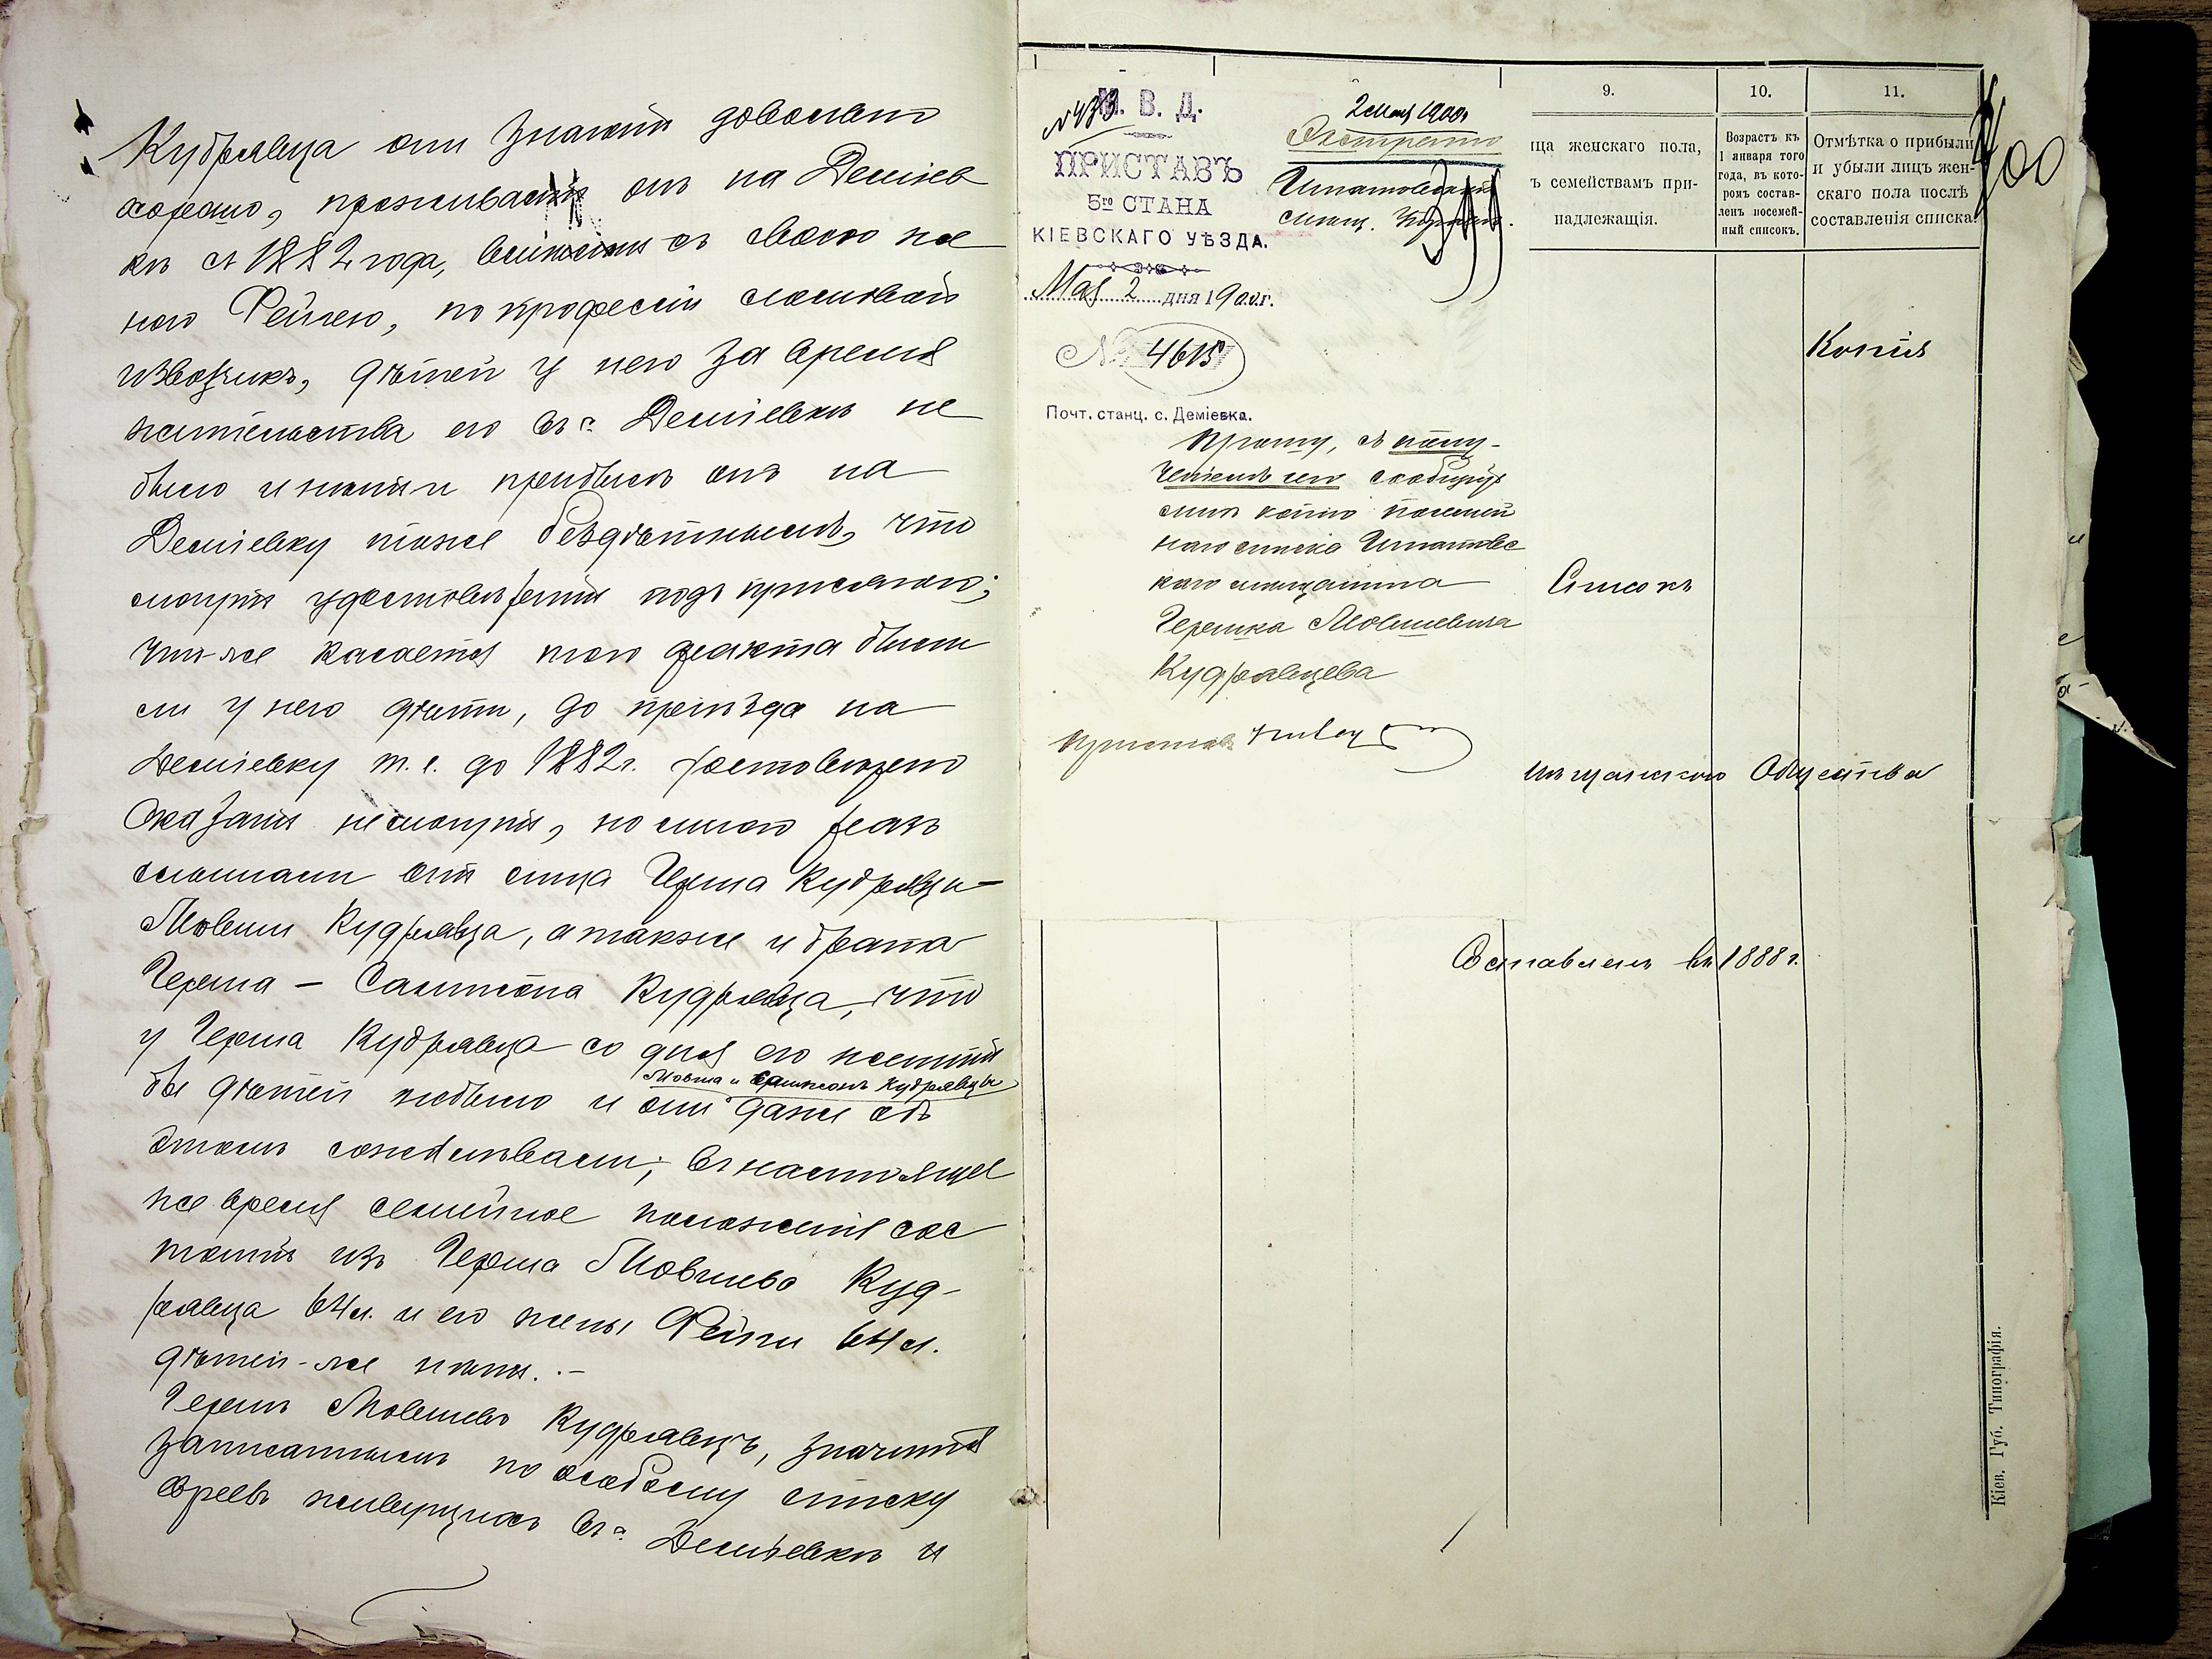 Кудрявца они знаютъ довольно
хорошо, проживаетъ онъ на Деміев
кѣ съ 1882 года, вмѣстѣ съ своею же
ною Фейгею, по професіи ломовой
извозчикъ, дѣтей у него за время
жительства его въ с. Деміевкѣ не
было и нѣтъ и прибылъ онъ на
Деміевку тоже бездѣтнымъ, что
могутъ удостовѣрить подъ присягою;
что-же касается того факта были
ли у него дѣти, до пріѣзда на
Деміевку т. е. до 1882 г. достовѣрно
сказать не могутъ, но много разъ
слышали отъ отца Герша Кудрявца—
Мовши Кудрявца, а также и брата
Герша — Самсона Кудрявца, что
у Герша Кудрявца со дня его женить
Мовша и Самсонъ Кудрявцы
бы дѣтей не было и они даже объ
этомъ сожалѣвали; въ настоящее
же время семейное положеніе сос
тоитъ изъ Герша Мовшева Куд-
рявца 64 л. и его жены Фейги 64 л.
дѣтей-же нѣтъ. —
Гершъ Мовшевъ Кудрявецъ, значится
записаннымъ по особому списку
евреевъ живущихъ въ с. Деміевкѣ и
№ 473
М. В. Д.
ПРИСТАВЪ
5го СТАНА
КІЕВСКАГО УѢЗДА.
Мая 2 дня 1900 г.
№ 4615
Почт. станц. с. Деміевка.
2 мая 1900 г.
Экстренно
Игнатовской
мѣщ. Управѣ.
Прошу, съ полу-
ченіемъ сего сообщить
мнѣ копію посемей
наго списка Игнатовс
каго мѣщанина
Гершка Мовшевича
Кудрявцева
Приставъ
9.
10.
11.
ица женскаго пола,
ъ семействамъ при-
надлежащія.
Возрастъ къ
1 января того
года, въ кото-
ромъ состав-
ленъ посемей-
ный списокъ.
Отмѣтка о прибыли
и убыли лицъ жен-
скаго пола послѣ
составленія списка.
400
Копія
Списокъ
мѣщанскаго Общества
Составленъ въ 1888 г.
Кіев. Губ. Типографія.